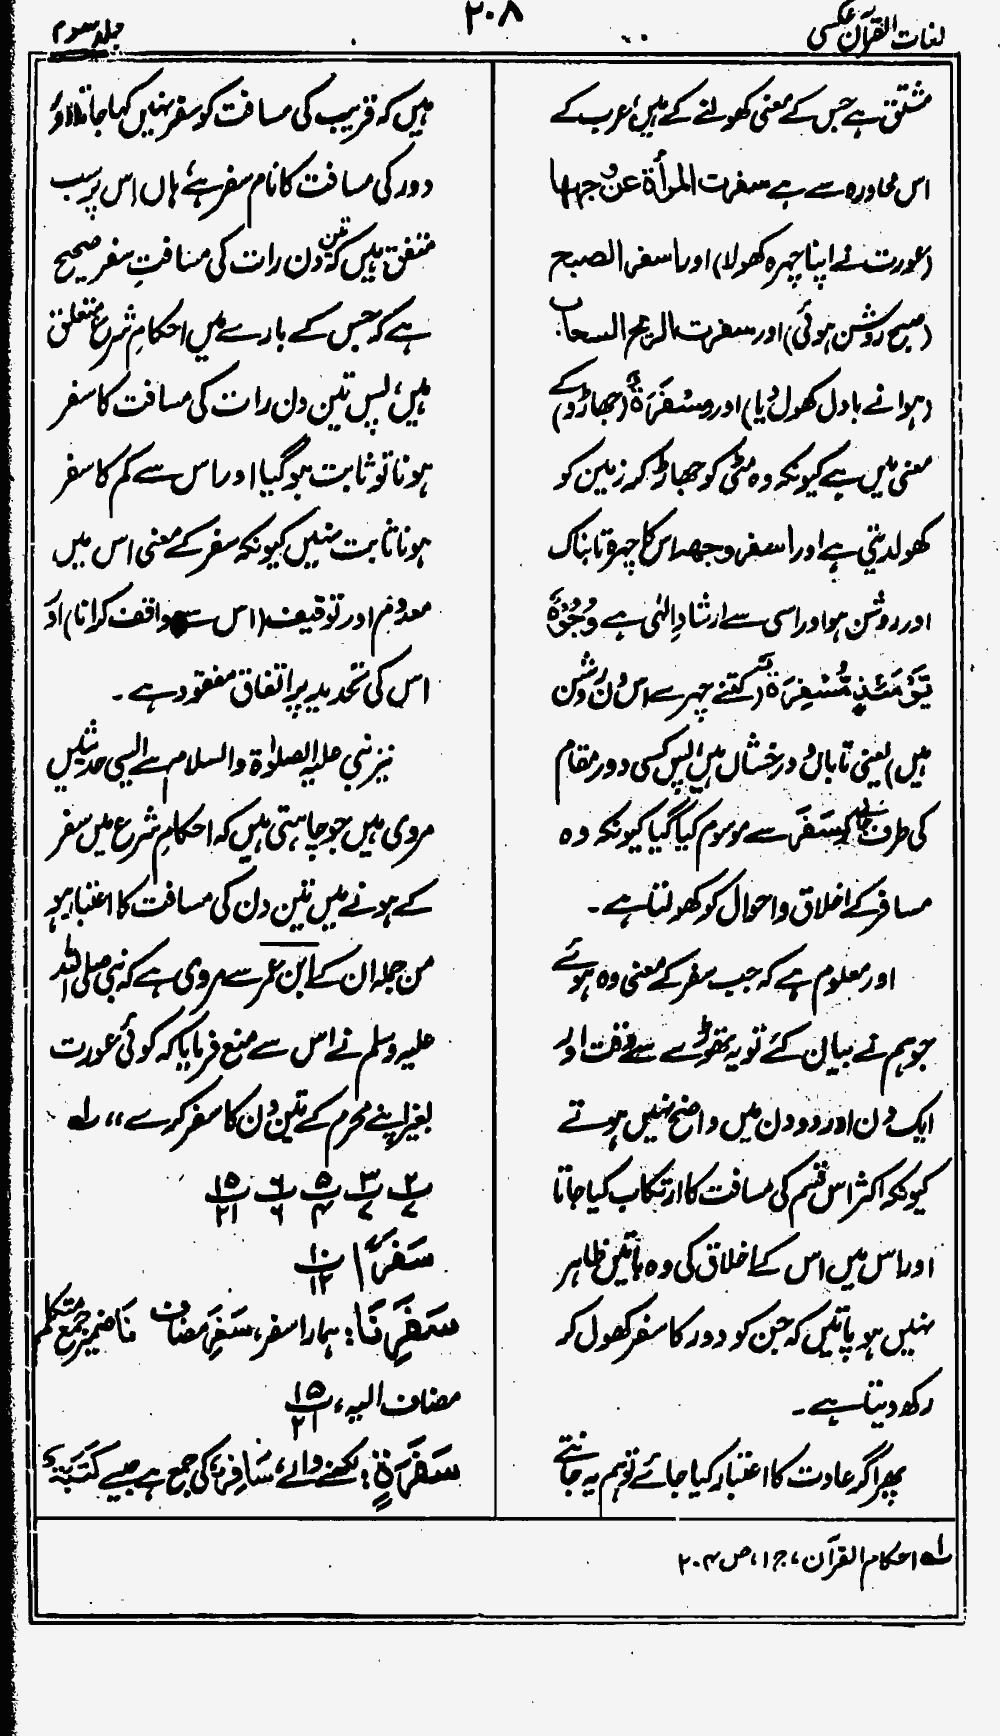 لغات القرآن عکسی
۲۰۸
جلد سوم
مشتق ہے جس کے معنی کھولنے کے ہیں، عرب کے
اس محاورہ سے ہے سفرت المرأة عن وجهها
(عورت نے اپنا چہرہ کھولا) اور اسفر الصبح
(صبح روشن ہوئی) اور سفرت الريح السحاب
(ہوا نے بادل کھول دیا) اور مِسْفَرَة (جھاڑو) کے
معنی میں ہے کیونکہ وہ مٹی کو جھاڑ کر زمین کو
کھولدیتی ہے اور اسفر وجهه اس کا چہرہ تابناک
اور روشن ہوا ور اسی سے ارشادِ الٰہی ہے وُجُوْهٌ
يَّوْمَئِذٍ مُّسْفِرَةٌ (کتنے چہرے اس دن روشن
ہیں) یعنی تاباں و درخشاں ہیں، پس کسی دور مقام
کی طرف جانے کو سَفَر سے موسوم کیا گیا کیونکہ وہ
مسافر کے اخلاق و احوال کو کھولتا ہے۔
اور معلوم ہے کہ جب سفر کے معنی وہ ہوئے
جو ہم نے بیان کئے تو یہ تھوڑے سے وقت اور
ایک دن اور دو دن میں واضح نہیں ہوتے
کیونکہ اکثر اس قسم کی مسافت کا ارتکاب کیا جاتا
اور اس میں اس کے اخلاق کی وہ باتیں ظاہر
نہیں ہو پاتیں کہ جن کو دور کا سفر کھول کر
رکھ دیتا ہے۔
پھر اگر عادت کا اعتبار کیا جائے تو ہم یہ جانتے
ہیں کہ قریب کی مسافت کو سفر نہیں کہا جاتا اور
دور کی مسافت کا نام سفر ہے، ہاں اس پر سب
متفق ہیں کہ تین دن رات کی مسافت سفر صحیح
ہے کہ جس کے بارے میں احکامِ شرع متعلق
ہیں، پس تین دن رات کی مسافت کا سفر
ہونا تو ثابت ہو گیا اور اس سے کم کا سفر
ہونا ثابت نہیں کیونکہ سفر کے معنی اس میں
معدوم اور توقیف (اس سے واقف کرانا) اور
اس کی تحدید پر اتفاق مفقود ہے۔
نیز نبی علیہ الصلوٰۃ والسلام سے ایسی حدیثیں
مروی ہیں جو چاہتی ہیں کہ احکامِ شرع میں سفر
کے ہونے میں تین دن کی مسافت کا اعتبار ہو
من جملہ ان کے ابن عمر سے مروی ہے کہ نبی صلی اللہ
علیہ وسلم نے اس سے منع فرمایا کہ کوئی عورت
بغیر اپنے محرم کے تین دن کا سفر کرے،، لہ
پ۲/۷ پ۳/۷ پ۵/۴ پ۶/۶ پ۱۵/۲۱
سَفَرًا پ۱۰/۱۲
سَفَرِنَا: ہمارا سفر، سَفَرِ مضاف نَا ضمیر جمع متکلم
مضاف الیہ، پ۱۵/۲۱
سَفَرَةٍ: لکھنے والے، سَافِرٌ کی جمع ہے جیسے كَتَبَةٌ
لہ احکام القرآن، ج ۱، ص ۲۰۴